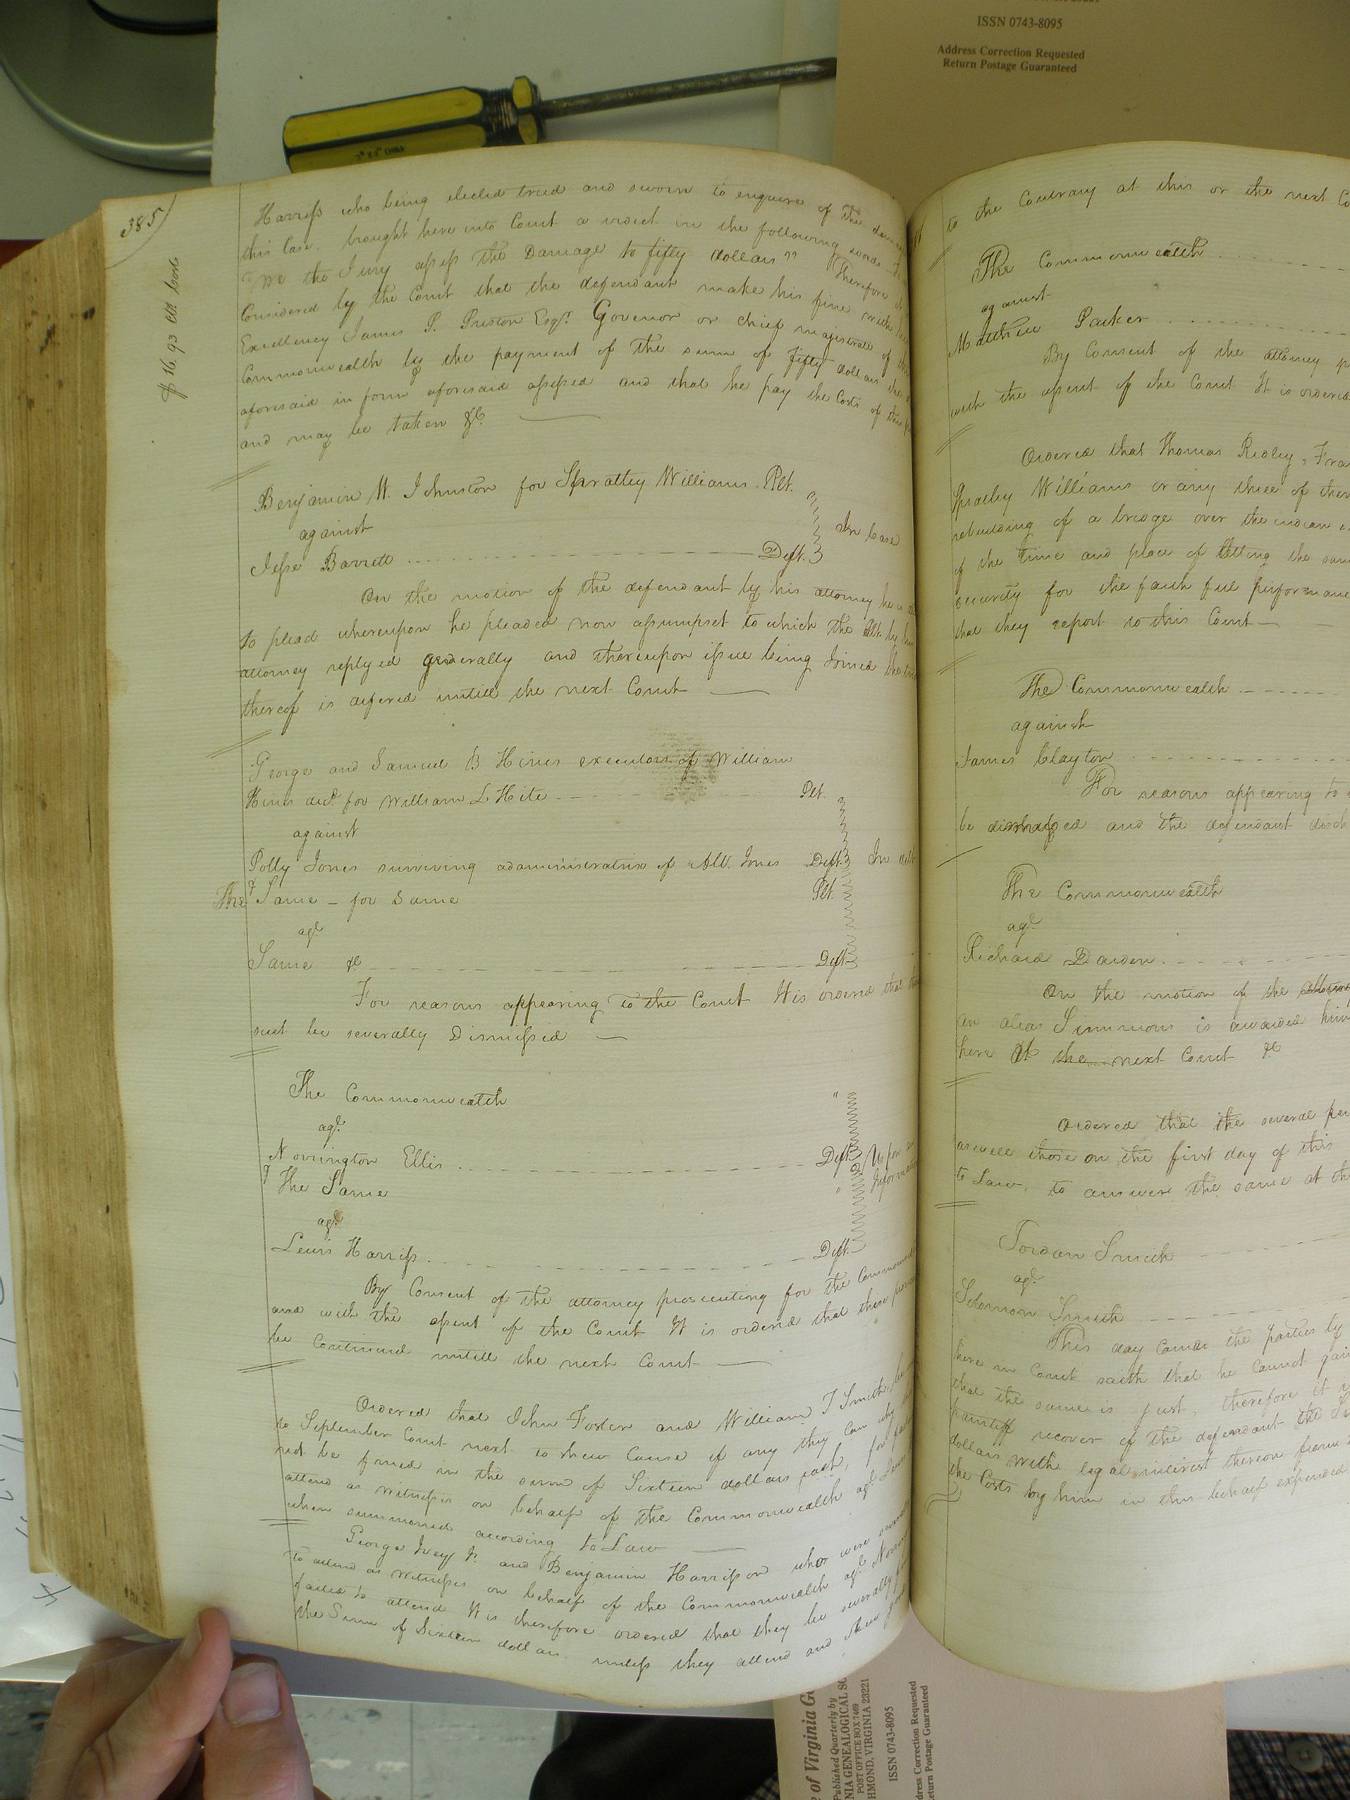 ISSN 0743-8095
Address Correction Requested
Return Postage Guaranteed
385
$16.93 Costs
Harriss who being elected tried and sworn to enquire of the
this case brought here into Court a verdict in the following words
"We the Jury assess the Damage to fifty dollars" Therefore it
Considered by the Court that the defendant make his fine with his
Excellency James P. Preston Esqr. Governor or chief magistrate of
Commonwealth by the payment of the sum of fifty dollars the
aforesaid in form aforesaid assessed and that he pay the Costs of this
and may be taken &c
Benjamin W. Johnston for Spratley Williams Plt.
against
In Case
Jesse Barrett Deft.
On the motion of the defendant by his attorney he is
to plead whereupon he pleaded non assumpset to which the Plt. by his
attorney replyed generally and thereupon issue being Joined the
thereof is defered untill the next Court
George and Samuel B Hines executors of William
Hines decd. for William L Hite Plt.
against
Polly Jones surviving administratrix of Jones Deft. In
The Same - for Same Plt.
agt.
Same &c Deft.
For reasons appearing to the Court It is ordered that
suit be severally Dismissed
The Commonwealth
agt.
Norrington Ellis Deft. Upon an
& The Same Information
agt.
Lewis Harriss Deft.
By Consent of the attorney prosecuting for the Commonwealth
and with the assent of the Court It is ordered that these
be Continued untill the next Court
Ordered that John Foster and William T Smith
to September Court next to shew Cause if any they can why
not be fined in the sum of Sixteen dollars each, for
attend as witnesses on behalf of the Commonwealth agt. Lewis
when summoned according to Law
George Ivey Jr. and Benjamin Harrison who were
to attend as witnesses on behalf of the Commonwealth agt.
failed to attend It is therefore ordered that they be severally
the Sum of Sixteen dollars unless they attend and shew
to the Contrary at this or the next
The Commonwealth
against
Matthew Parker
By Consent of the attorney
with the assent of the Court It is ordered
Ordered that Thomas Ridley,
Spratley Williams or any three of them
rebuilding of a bridge over the indian
of the time and place of letting the same
security for the faithful performance
that they report to this Court
The Commonwealth
against
James Clayton
For reasons appearing to
be discharged and the defendant
The Commonwealth
agt.
Richard Darden
On the motion of the
an alias Summons is awarded him
here at the next Court &c
Ordered that the several
as well those on the first day of this
to Law, to answer the same at
Jordan Smith
agt.
Solomon Smith
This day came the parties by
here in Court saith that he cannot
that the same is just, therefore it
plaintiff recover of the defendant the
dollars with legal interest thereon from
the Costs by him in this behalf expended
of Virginia
Published Quarterly by
GENEALOGICAL
POST OFFICE BOX 7469
VIRGINIA 23221
ISSN 0743-8095
Correction Requested
Postage Guaranteed